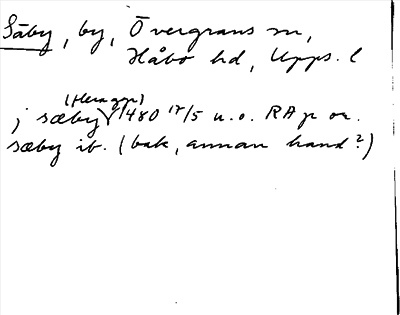 Säby, by, Övergrans sn,
Håbo hd, Upps. l
(Heragar)
j sæby 1480 17/5 u.o. RAp or.
sæby ib. (bak, annan hand?)